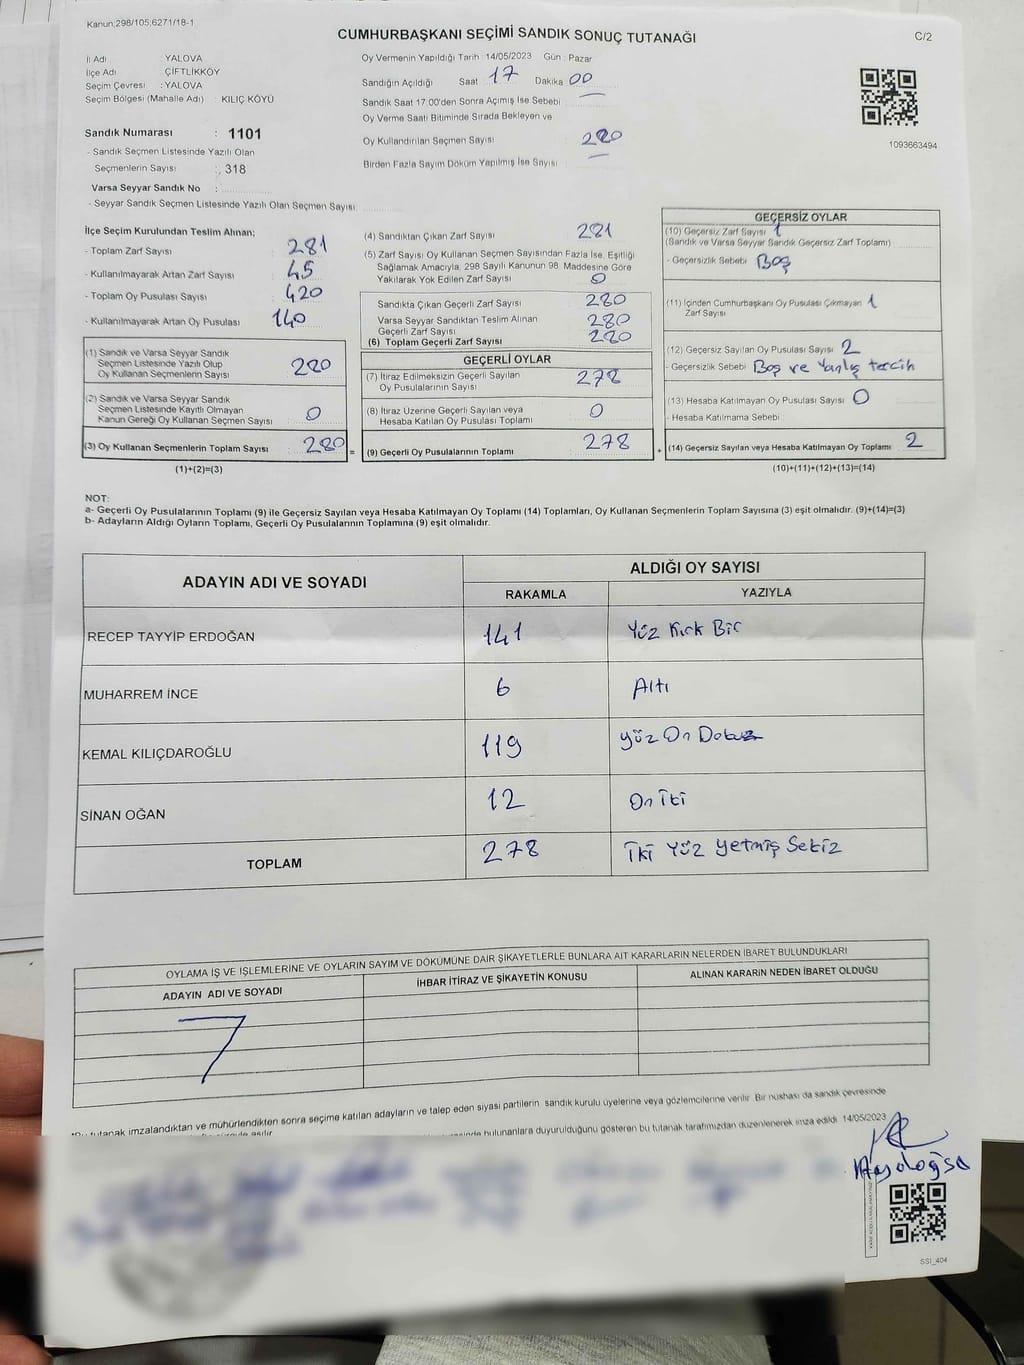 Kanun;298/105;6271/18-1
CUMHURBAŞKANI SEÇİMİ SANDIK SONUÇ TUTANAĞI
C/2
İl Adı : YALOVA
İlçe Adı : ÇİFTLİKKÖY
Seçim Çevresi : YALOVA
Seçim Bölgesi (Mahalle Adı) : KILIÇ KÖYÜ
Sandık Numarası : 1101
- Sandık Seçmen Listesinde Yazılı Olan
Seçmenlerin Sayısı : 318
Varsa Seyyar Sandık No :
- Seyyar Sandık Seçmen Listesinde Yazılı Olan Seçmen Sayısı:
Oy Vermenin Yapıldığı Tarih 14/05/2023 Gün : Pazar
Sandığın Açıldığı Saat 17 Dakika 00
Sandık Saat 17:00'den Sonra Açımış İse Sebebi —
Oy Verme Saati Bitiminde Sırada Bekleyen ve
Oy Kullandırılan Seçmen Sayısı 280
Birden Fazla Sayım Döküm Yapılmış İse Sayısı —
1093663494
İlçe Seçim Kurulundan Teslim Alınan;
- Toplam Zarf Sayısı 281
- Kullanılmayarak Artan Zarf Sayısı 45
- Toplam Oy Pusulası Sayısı 420
- Kullanılmayarak Artan Oy Pusulası 140
(1) Sandık ve Varsa Seyyar Sandık
Seçmen Listesinde Yazılı Olup
Oy Kullanan Seçmenlerin Sayısı 280
(2) Sandık ve Varsa Seyyar Sandık
Seçmen Listesinde Kayıtlı Olmayan
Kanun Gereği Oy Kullanan Seçmen Sayısı 0
(3) Oy Kullanan Seçmenlerin Toplam Sayısı 280 =
(1)+(2)=(3)
(4) Sandıktan Çıkan Zarf Sayısı 281
(5) Zarf Sayısı Oy Kullanan Seçmen Sayısından Fazla İse, Eşitliği
Sağlamak Amacıyla, 298 Sayılı Kanunun 98. Maddesine Göre
Yakılarak Yok Edilen Zarf Sayısı 0
Sandıkta Çıkan Geçerli Zarf Sayısı 280
Varsa Seyyar Sandıktan Teslim Alınan
Geçerli Zarf Sayısı 280
(6) Toplam Geçerli Zarf Sayısı 280
GEÇERLİ OYLAR
(7) İtiraz Edilmeksizin Geçerli Sayılan
Oy Pusulalarının Sayısı 278
(8) İtiraz Üzerine Geçerli Sayılan veya
Hesaba Katılan Oy Pusulası Toplamı 0
(9) Geçerli Oy Pusulalarının Toplamı 278 +
GEÇERSİZ OYLAR
(10) Geçersiz Zarf Sayısı 1
(Sandık ve Varsa Seyyar Sandık Geçersiz Zarf Toplamı)
- Geçersizlik Sebebi Boş
(11) İçinden Cumhurbaşkanı Oy Pusulası Çıkmayan 1
Zarf Sayısı
(12) Geçersiz Sayılan Oy Pusulası Sayısı 2
- Geçersizlik Sebebi Boş ve Yanlış tercih
(13) Hesaba Katılmayan Oy Pusulası Sayısı 0
- Hesaba Katılmama Sebebi
(14) Geçersiz Sayılan veya Hesaba Katılmayan Oy Toplamı 2
(10)+(11)+(12)+(13)=(14)
NOT:
a- Geçerli Oy Pusulalarının Toplamı (9) ile Geçersiz Sayılan veya Hesaba Katılmayan Oy Toplamı (14) Toplamları, Oy Kullanan Seçmenlerin Toplam Sayısına (3) eşit olmalıdır. (9)+(14)=(3)
b- Adayların Aldığı Oyların Toplamı, Geçerli Oy Pusulalarının Toplamına (9) eşit olmalıdır.
ADAYIN ADI VE SOYADI
ALDIĞI OY SAYISI
RAKAMLA YAZIYLA
RECEP TAYYİP ERDOĞAN 141 Yüz Kırk Bir
MUHARREM İNCE 6 Altı
KEMAL KILIÇDAROĞLU 119 yüz On Dokuz
SİNAN OĞAN 12 On İki
TOPLAM 278 İki Yüz Yetmiş Sekiz
OYLAMA İŞ VE İŞLEMLERİNE VE OYLARIN SAYIM VE DÖKÜMÜNE DAİR ŞİKAYETLERLE BUNLARA AİT KARARLARIN NELERDEN İBARET BULUNDUKLARI
ADAYIN ADI VE SOYADI
İHBAR İTİRAZ VE ŞİKAYETİN KONUSU
ALINAN KARARIN NEDEN İBARET OLDUĞU
tutanak imzalandıktan ve mühürlendikten sonra seçime katılan adayların ve talep eden siyasi partilerin, sandık kurulu üyelerine veya gözlemcilerine verilir. Bir nüshası da sandık çevresinde
bulunanlara duyurulduğunu gösteren bu tutanak tarafımızdan düzenlenerek imza edildi. 14/05/2023
SSI_404